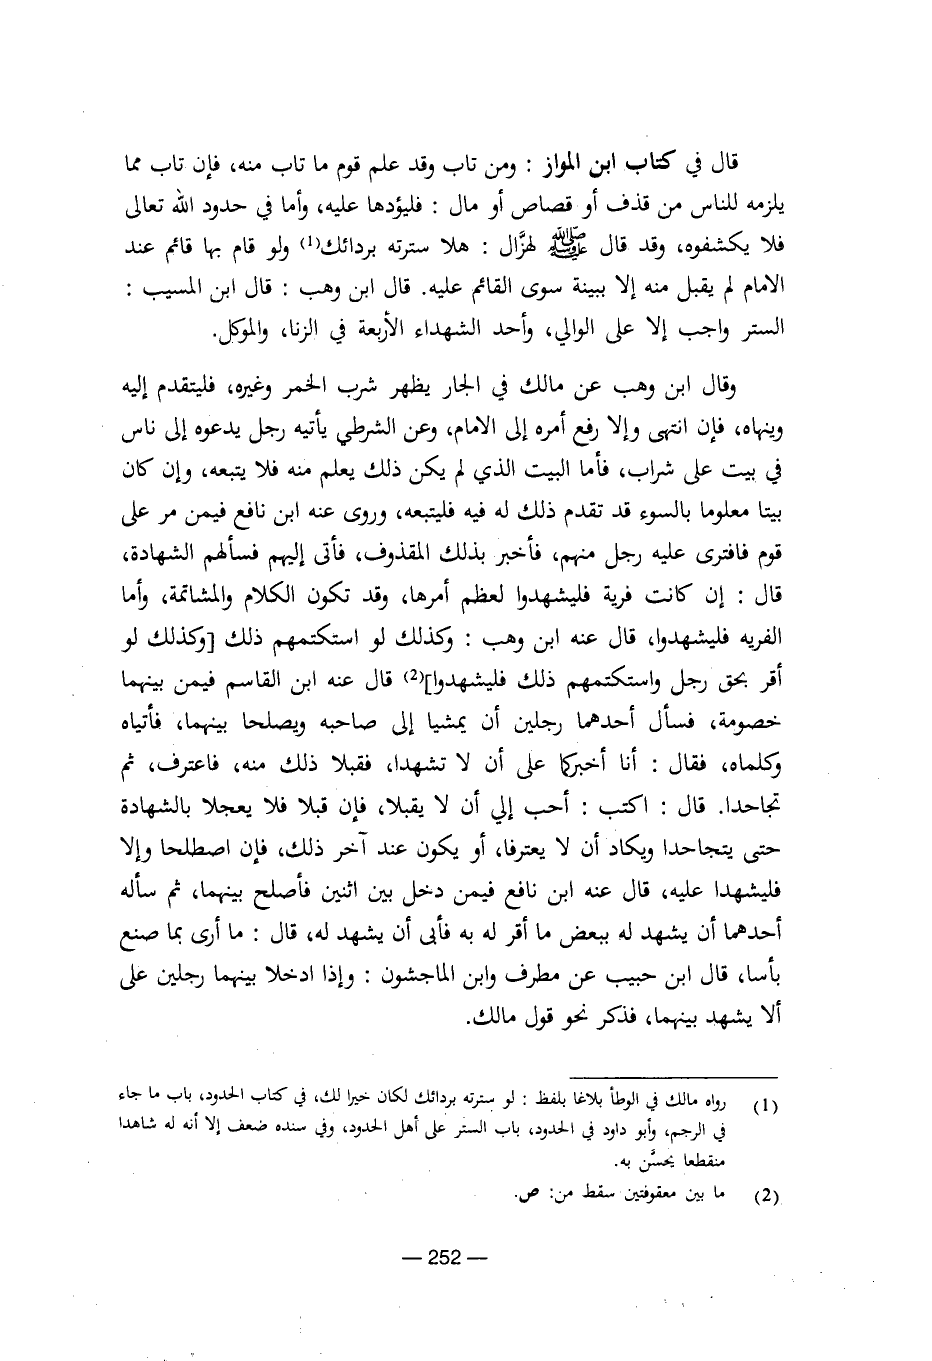 قال في كتاب ابن المواز : ومن تاب وقد علم قوم ما تاب منه، فإن تاب مما
يلزمه للناس من قذف أو قصاص أو مال : فليؤدها عليه، وأما في حدود الله تعالى
فلا يكشفوه، وقد قال ﷺ لهزَّال : هلا سترته بردائك(1) ولو قام بها قائم عند
الامام لم يقبل منه إلا ببينة سوى القائم عليه. قال ابن وهب : قال ابن المسيب :
الستر واجب إلا على الوالي، وأحد الشهداء الأربعة في الزنا، والموكل.
وقال ابن وهب عن مالك في الجار يظهر شرب الخمر وغيره، فليتقدم إليه
وينهاه، فإن انتهى وإلا رفع أمره إلى الامام، وعن الشرطي يأتيه رجل يدعوه إلى ناس
في بيت على شراب، فأما البيت الذي لم يكن ذلك يعلم منه فلا يتبعه، وإن كان
بيتا معلوما بالسوء قد تقدم ذلك له فيه فليتبعه، وروى عنه ابن نافع فيمن مر على
قوم فافترى عليه رجل منهم، فأخبر بذلك المقذوف، فأتى إليهم فسألهم الشهادة،
قال : إن كانت فرية فليشهدوا لعظم أمرها، وقد تكون الكلام والمشاتمة، وأما
الفريه فليشهدوا، قال عنه ابن وهب : وكذلك لو استكتمهم ذلك [وكذلك لو
أقر بحق رجل واستكتمهم ذلك فليشهدوا](2) قال عنه ابن القاسم فيمن بينهما
خصومة، فسأل أحدهما رجلين أن يمشيا إلى صاحبه ويصلحا بينهما، فأتياه
وكلماه، فقال : أنا أخبركما على أن لا تشهدا، فقبلا ذلك منه، فاعترف، ثم
تجاحدا. قال : اكتب : أحب إلي أن لا يقبلا، فإن قبلا فلا يعجلا بالشهادة
حتى يتجاحدا ويكاد أن لا يعترفا، أو يكون عند آخر ذلك، فإن اصطلحا وإلا
فليشهدا عليه، قال عنه ابن نافع فيمن دخل بين اثنين فأصلح بينهما، ثم سأله
أحدهما أن يشهد له ببعض ما أقر له به فأبى أن يشهد له، قال : ما أرى بما صنع
بأسا، قال ابن حبيب عن مطرف وابن الماجشون : وإذا ادخلا بينهما رجلين على
ألا يشهد بينهما، فذكر نحو قول مالك.
(1) رواه مالك في الوطأ بلاغا بلفظ : لو سترته بردائك لكان خيرا لك، في كتاب الحدود، باب ما جاء
في الرجم، وأبو داود في الحدود، باب الستر على أهل الحدود، وفي سنده ضعف إلا أنه له شاهدا
منقطعا يحسَّن به.
(2) ما بين معقوفتين سقط من: ص.
— 252 —